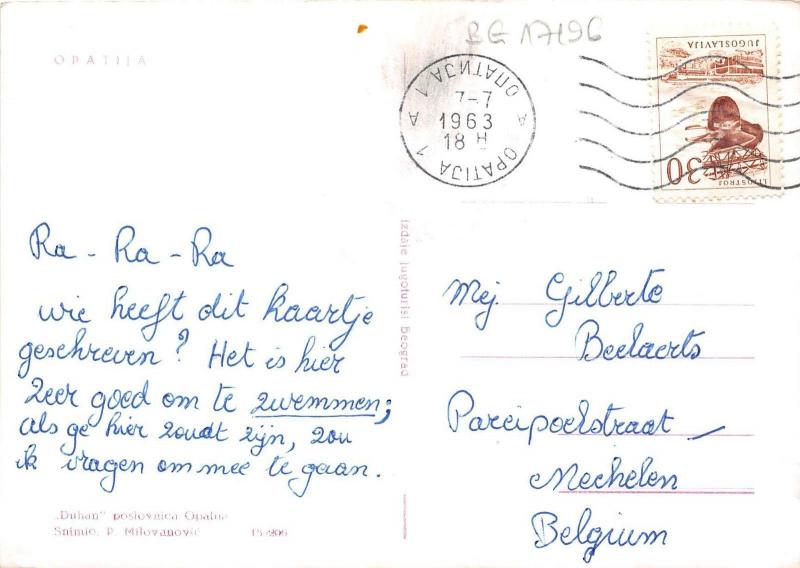 BG 17196
OPATIJA
ОПАТИЈА 1
7-7
1963
18 H
A A
OPATIJA 1
JUGOSLAVIJA
30
LITOSTROJ
Ra - Ra - Ra
wie heeft dit kaartje
geschreven? Het is hier
zeer goed om te zwemmen;
als ge hier zoudt zijn, zou
ik vragen om mee te gaan.
izdaje jugoturist Beograd
Mej Gilberte
Beelaerts
Pareipoelstraat
Mechelen
Belgium
„Duhan" poslovnica Opatija
Snimio: P. Milovanović